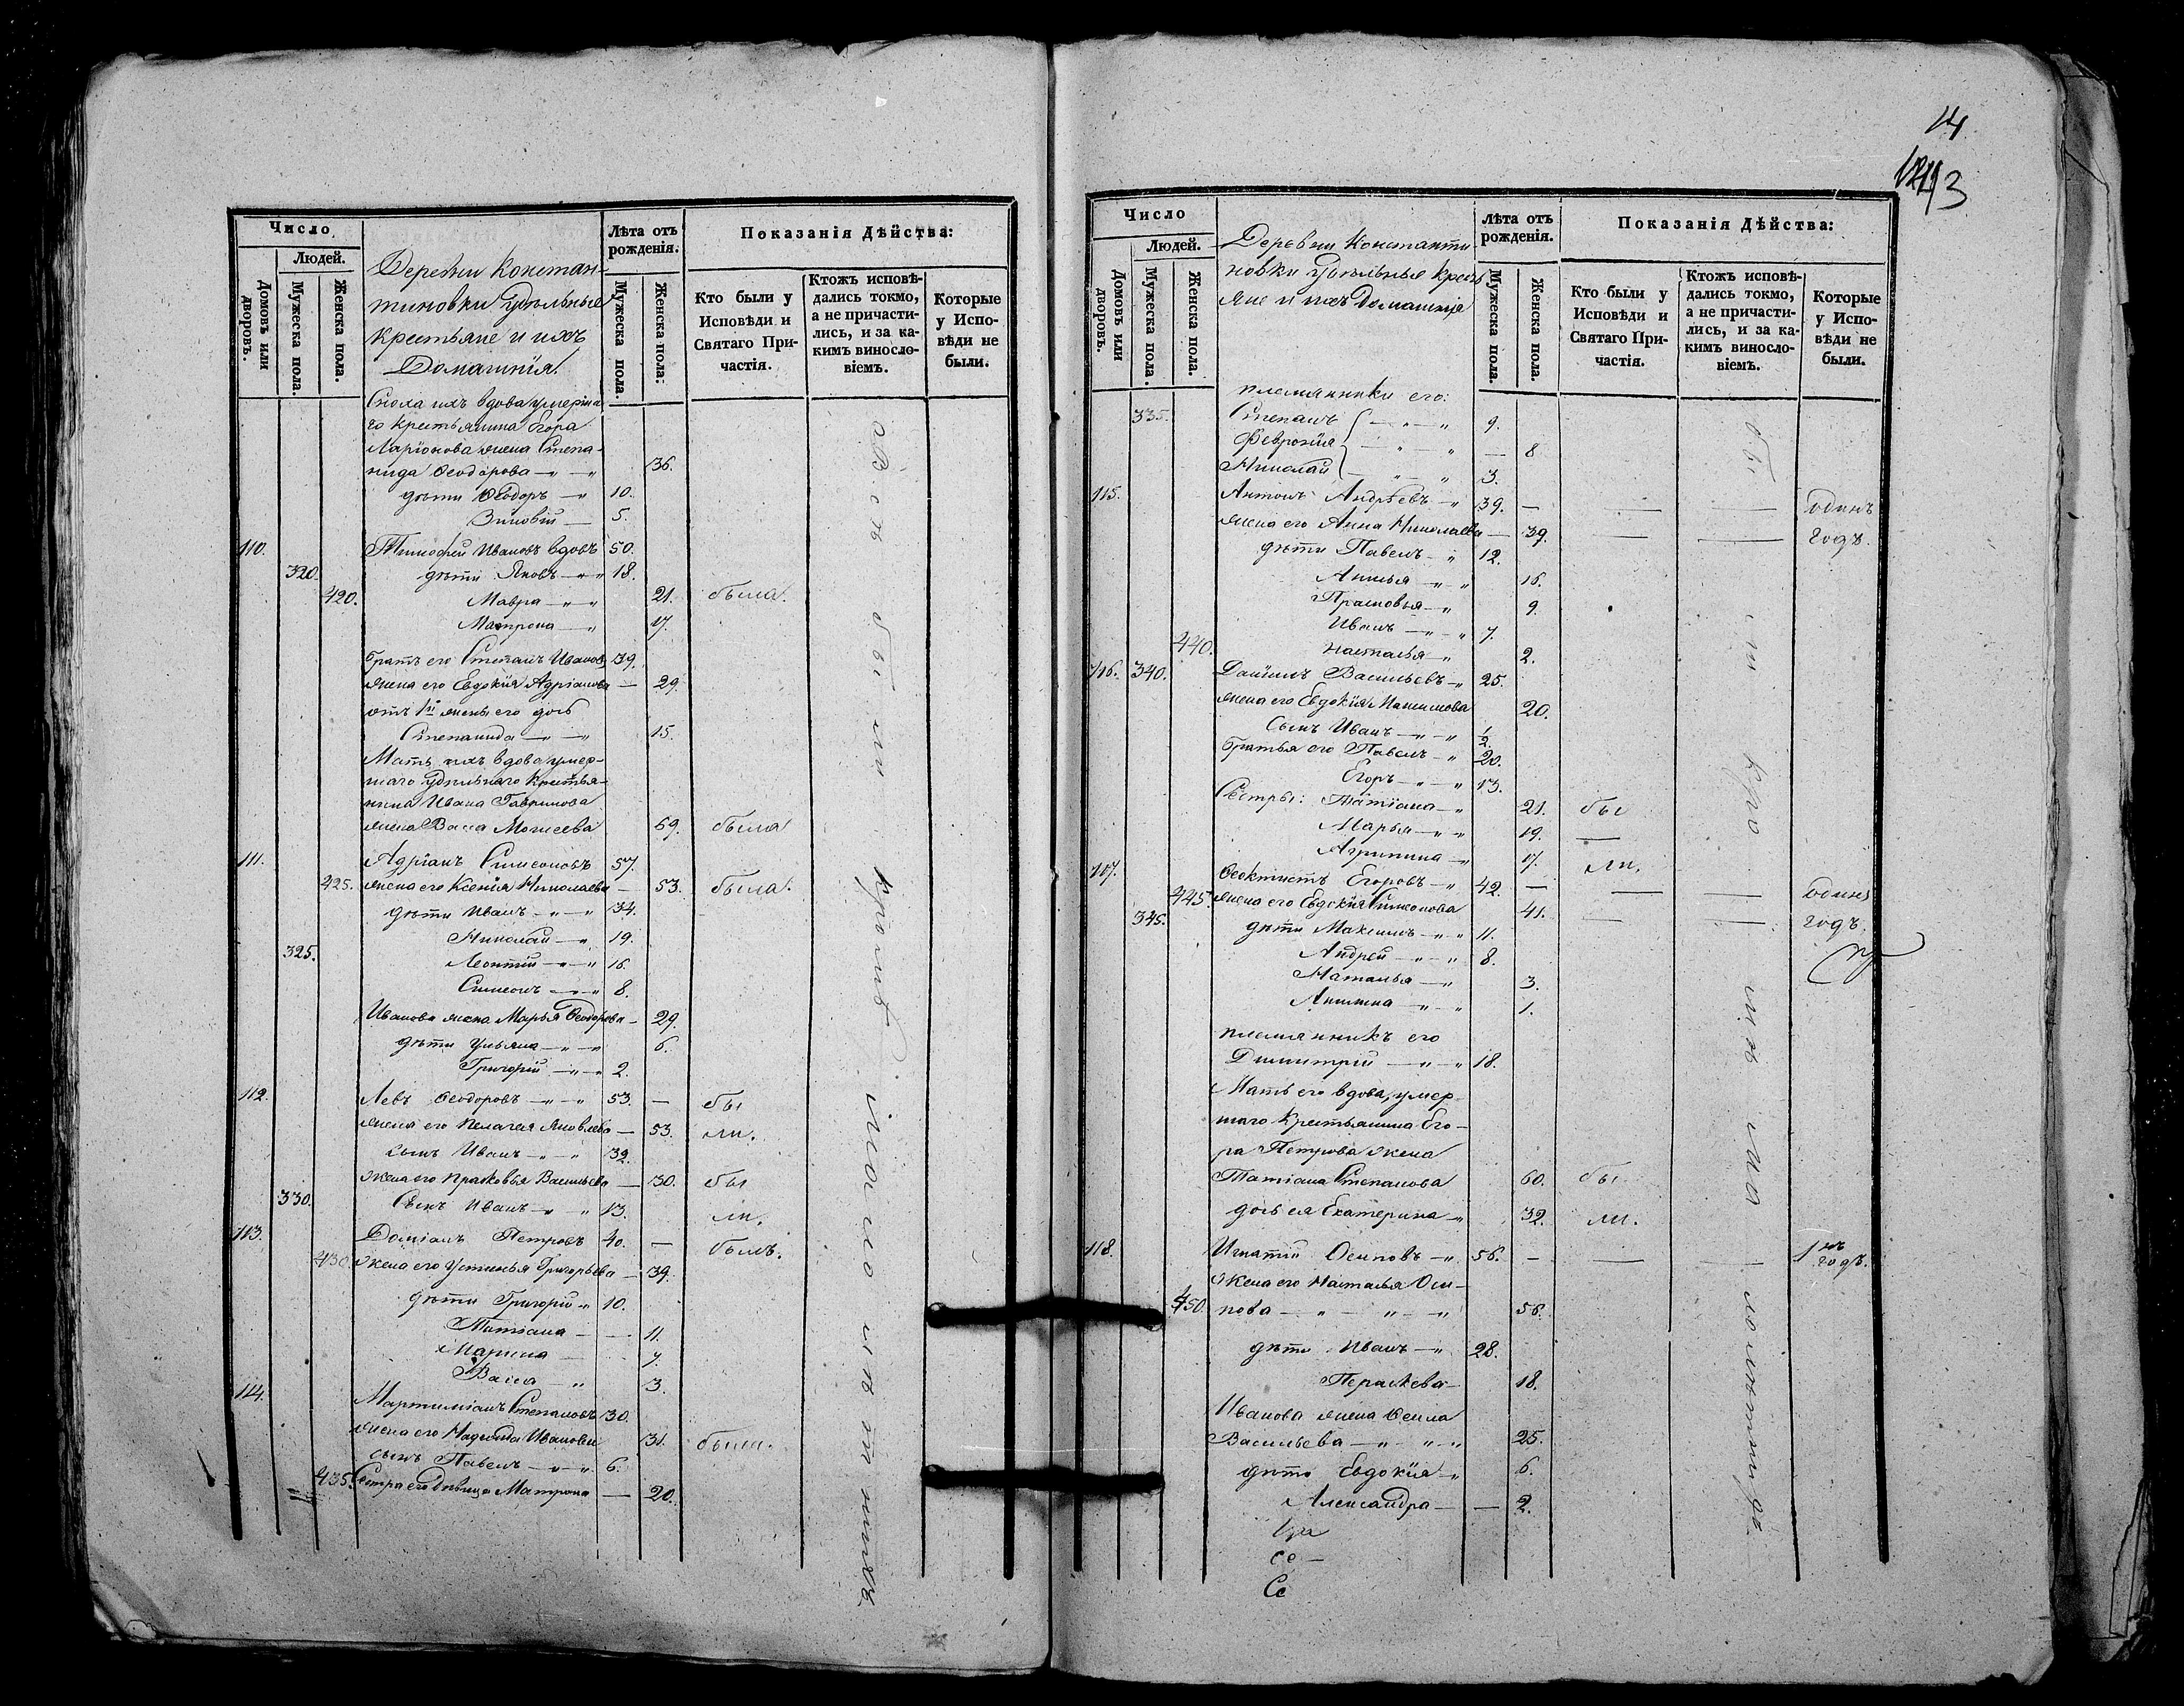 Число
Людей.
Домовъ или дворовъ.
Мужеска пола.
Женска пола.
Деревни Констан-
тиновки Удѣльные
крестьяне и ихъ
Домашнія.
Лѣта отъ рожденія.
Мужеска пола
Женска пола:
Показанія Дѣйства:
Кто были у Исповѣди и Святаго При-частія.
Ктожъ исповѣ-дались токмо, а не причасти-лись, и за ка-кимъ винословіемъ.
Которые у Испо-вѣди не были.
Сноха ихъ вдова умерша
го крестьянина Егора
Ларіонова жена Степа-
нида Ѳеодорова 36.
дѣти Ѳеодоръ 10.
Зиновій 5.
110. Тимофей Ивановъ вдовъ 50.
320. дѣти Яковъ 18.
420. Мавра 21. была.
Матрона 17.
Братъ его Степанъ Иванов 39.
жена его Евдокія Адріанова 29.
отъ 1й жены его дочь
Степанида 15.
Мать ихъ вдова умер-
шаго Удѣльнаго крестья-
нина Ивана Гаврилова
жена Васса Моисеева 69. была
111. Адріанъ Симеоновъ 57.
425. жена его Ксенія Николаева 53. была.
дѣти Иванъ 34.
Николай 19.
325. Леонтій 16.
Симеонъ 8.
Иванова жена Марья Ѳеодорова 29.
дѣти Ульяна 6.
Григорій 2.
112. Левъ Ѳеодоровъ 53. бы
жена его Пелагея Яковлева 53. ли.
сынъ Иванъ 32.
жена его Прасковья Васильева 30. бы
330. Сынъ Иванъ 13. ли.
113. Доміанъ Петровъ 40. былъ.
430. жена его Устинья Григорьева 39.
дѣти Григорій 10.
Татіана 11.
Марина 7.
Васса 3.
114. Мартиміанъ Степановъ 30.
жена его Надежда Иванова 31. были.
сынъ Павелъ 6.
435. Сестра его дѣвица Матрона 20.
14
Число
Людей.
Домовъ или дворовъ.
Мужеска пола.
Женска пола.
Деревни Константи
новки Удѣльные кресть
яне и ихъ Домашніе
Лѣта отъ рожденія.
Мужеска пола.
Женска пола.
Показанія Дѣйства:
Кто были у Исповѣди и Святаго При-частія.
Ктожъ исповѣ-дались токмо, а не причасти-лись, и за ка-кимъ винословіемъ.
Которые у Испо-вѣди не были.
племянники его:
335. Степанъ 9.
Февронія 8
Николай 3.
115. Антонъ Андрѣевъ 39. одинъ
жена его Анна Николаева 39. годъ.
дѣти Павелъ 12.
Анисья 16.
Прасковья 9.
Иванъ 7.
440. Наталья 2.
116. 340. Даніилъ Васильевъ 25.
жена его Евдокія Максимова 20.
Сынъ Иванъ 1/2.
братья его Павелъ 20.
Егоръ 13.
Сестры: Татіана 21. бы
Марья 19.
Агрипина 17. ли.
117. Ѳеоктистъ Егоровъ 42. один
445. жена его Евдокія Симеонова 41. годъ.
345. дѣти Максимъ 11.
Андрей 8.
Наталья 3.
Акилина 1.
племянникъ его
Димитрій 18.
Мать его вдова, умер-
шаго крестьянина Его-
ра Петрова жена
Татіана Степанова 60. бы
дочь ея Екатерина 32. ли.
118. Игнатій Осиповъ 56. 1нъ годъ.
Жена его Наталья Оси-
450. пова 56.
дѣти Иванъ 28.
Параскева 18.
Иванова жена Ѳекла
Васильева 25.
дѣти Евдокія 6.
Александра 2.